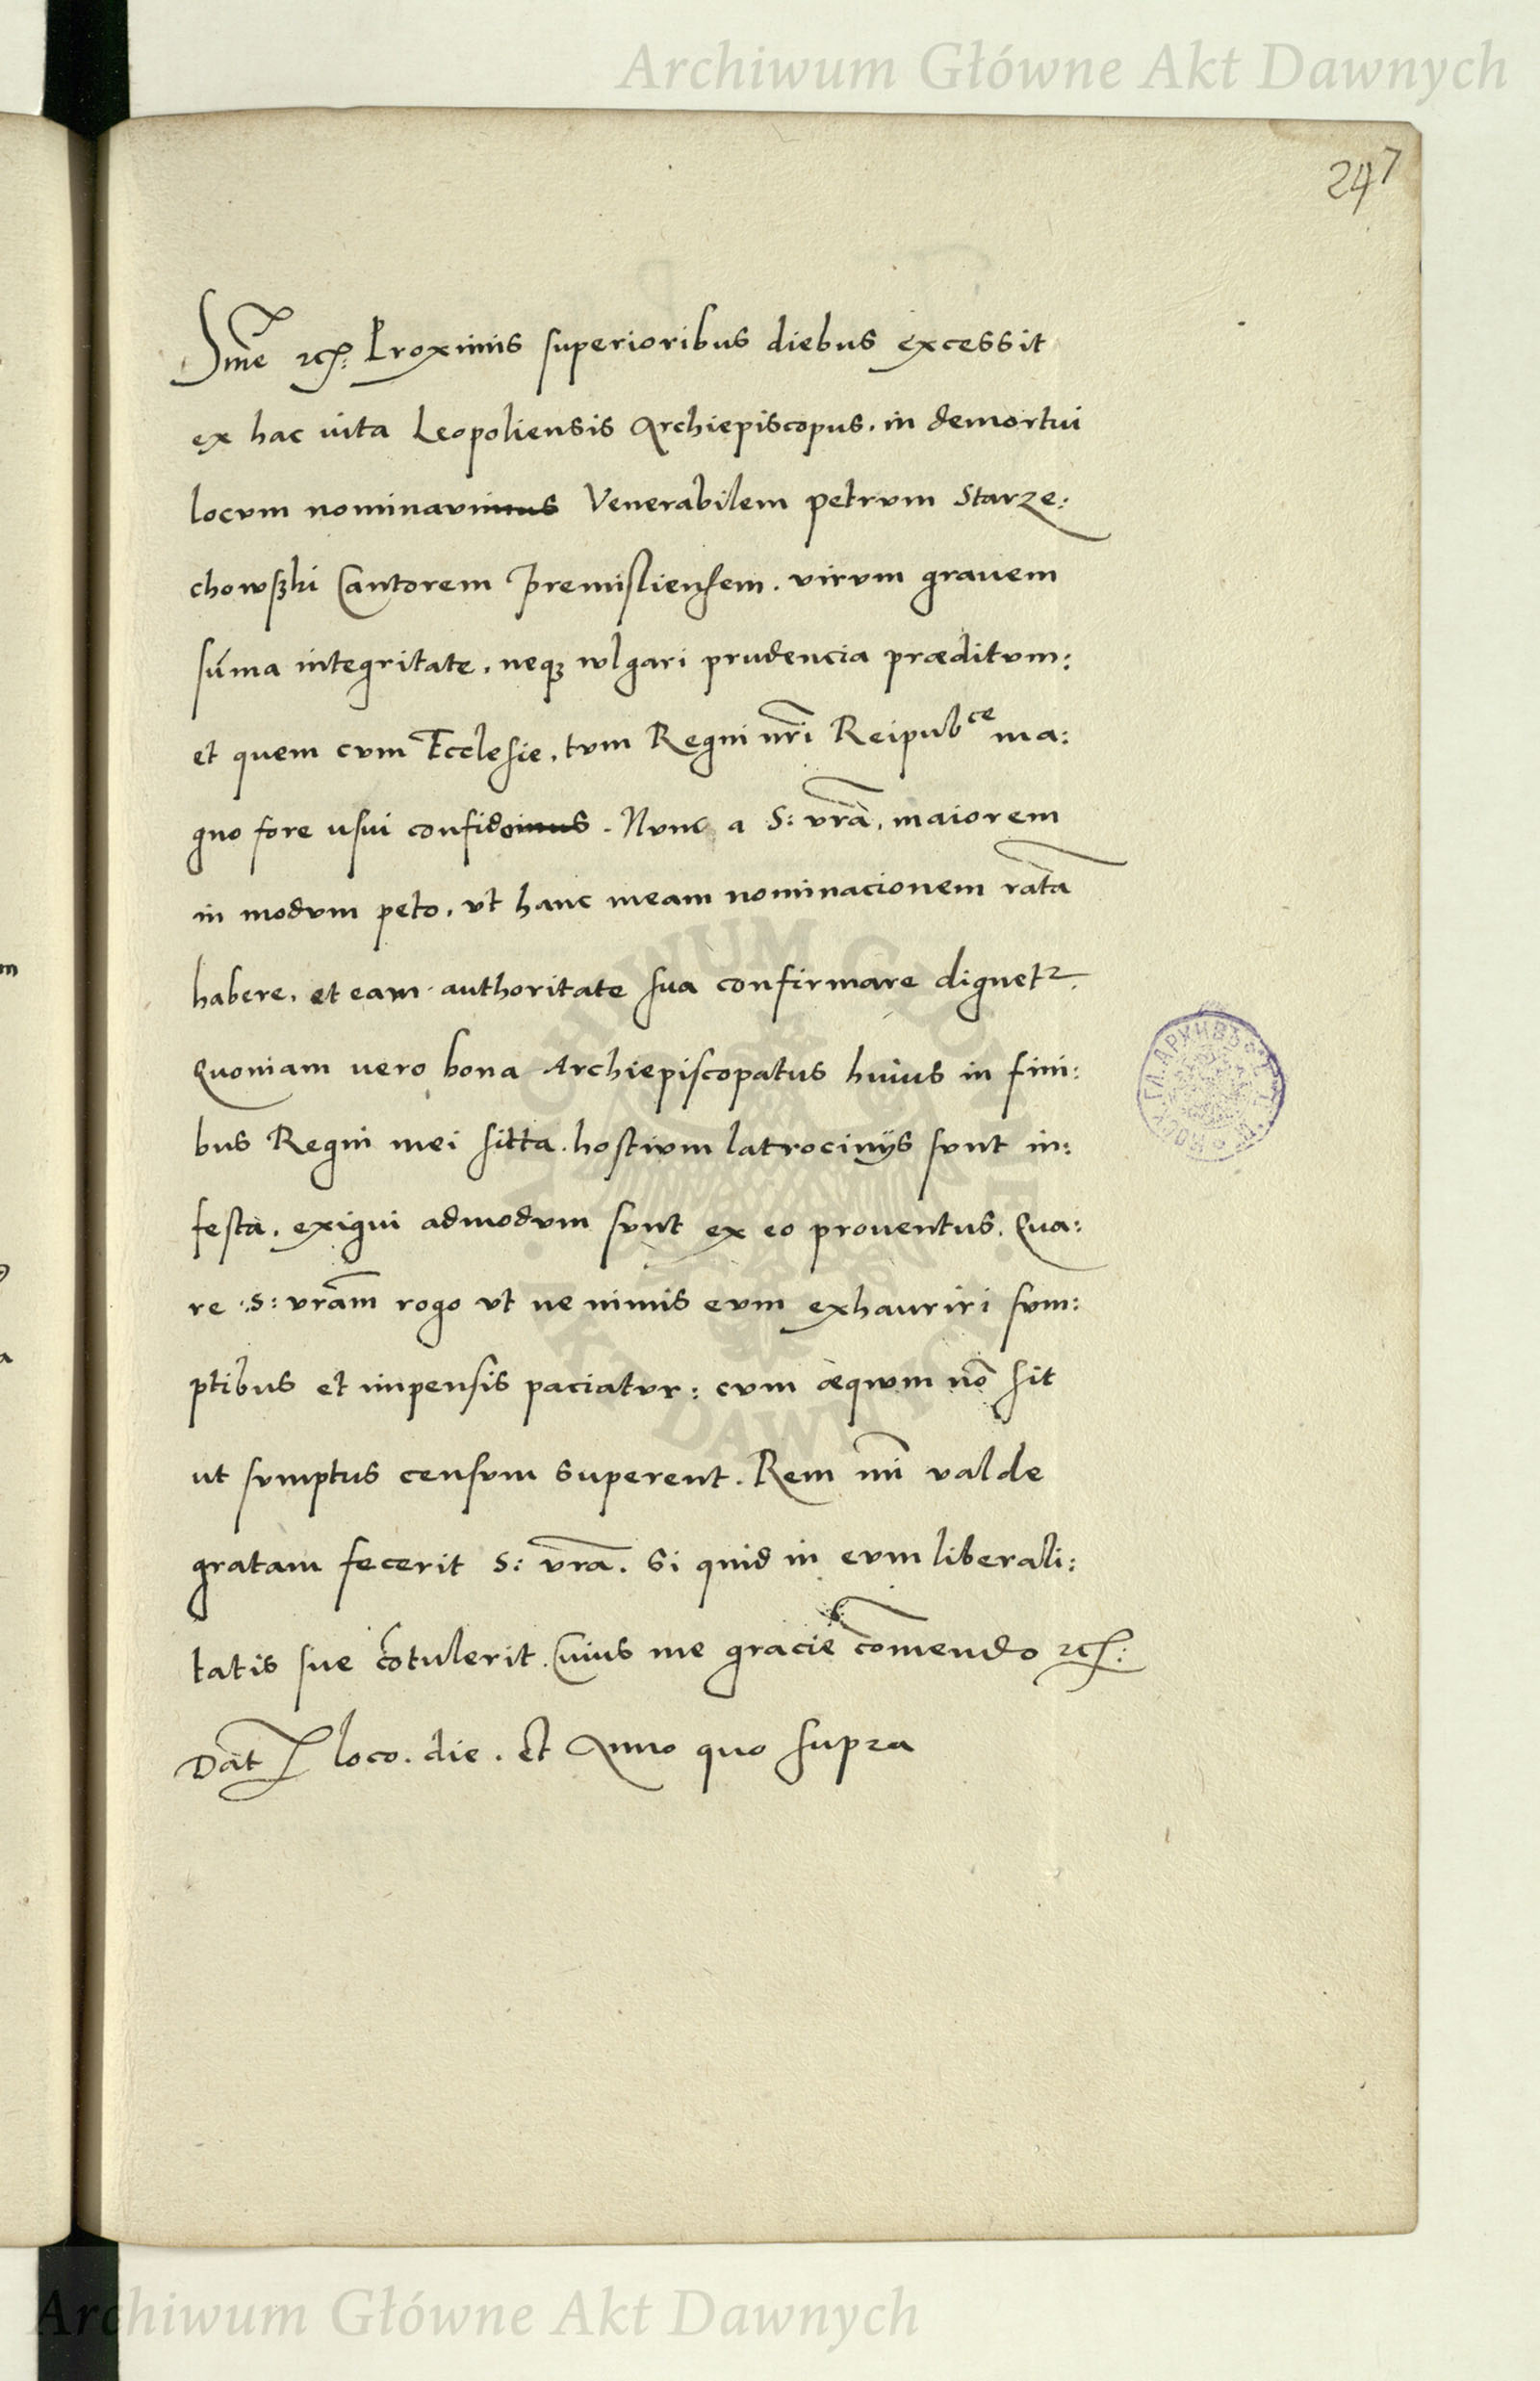 Archiwum Główne Akt Dawnych
247
Sme etc: Proximis superioribus diebus excessit
ex hac uita Leopoliensis Archiepiscopus. in demortui
locum nominauimus Venerabilem petrum Starze:
chowski Cantorem Premisliensem. uirum grauem
suma integritate, neq3 wlgari prudencia præditum:
et quem cum Ecclesie, tum Regni nri Reipubce ma:
gno fore usui confidoimus. Nunc a S: vra, maiorem
in modum peto, vt hanc meam nominacionem rata
habere, et eam authoritate sua confirmare dignet2.
Quoniam uero bona Archiepiscopatus huius in fini:
bus Regni mei sitta hostium latrocinijs sunt in:
festa, exigui admodum sunt ex eo prouentus. Qua:
re S: vram rogo vt ne nimis eum exhauriri sum:
ptibus et impensis paciatur: cum æquum no sit
ut sumptus censum superent. Rem mi valde
gratam fecerit S: vra. Si quid in eum liberali:
tatis sue cotulerit. Cuius me gracie comendo etc:
Dat loco. die. et Anno quo supra
Archiwum Główne Akt Dawnych